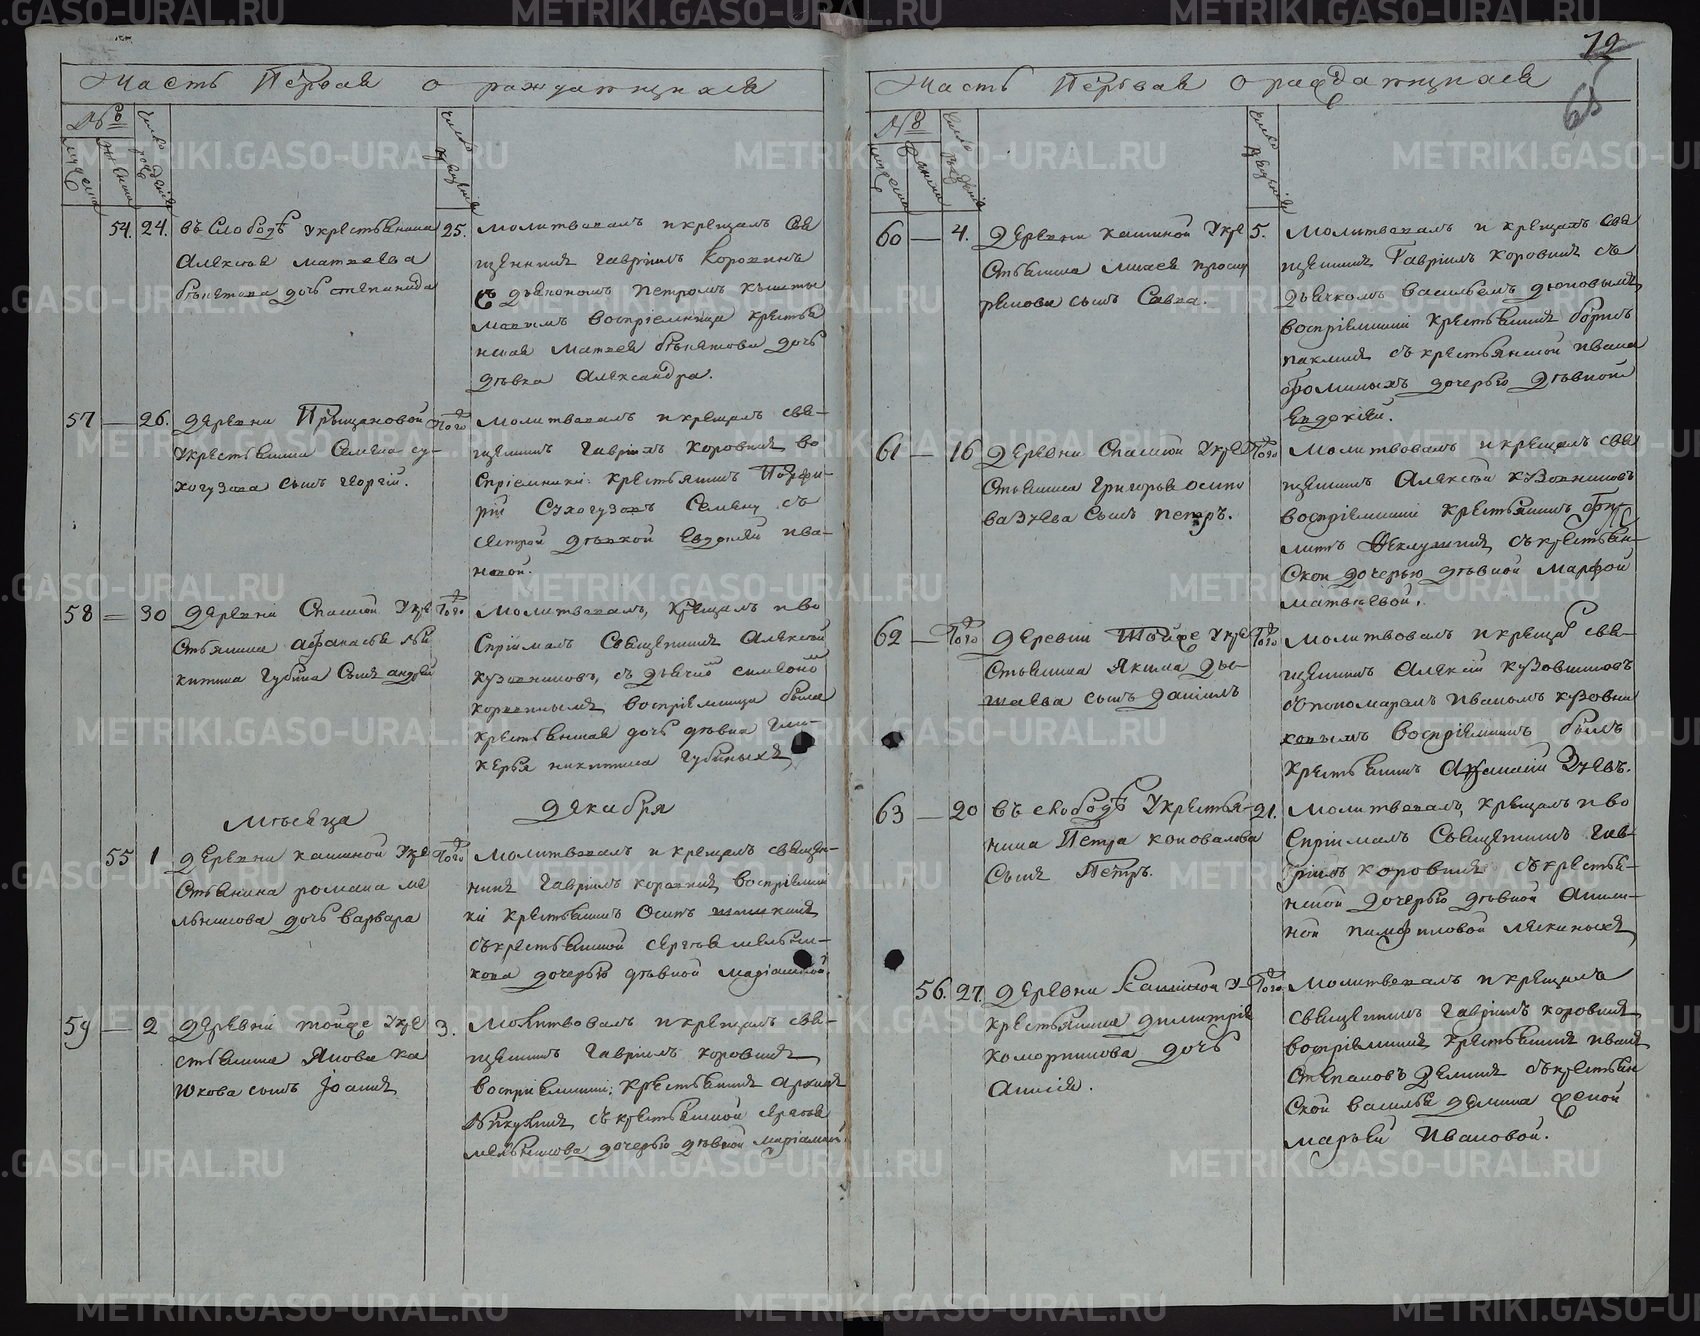 Часть Первая о раждающихся
№в
мужеска
женска
число рожденія
число крещенія
54. 24. въ Слободѣ Укрестьянина
Алексѣя Матвеева
дочь степанида
25. Молитвовалъ и крещалъ Свя
щенникъ Гавріилъ Коровинъ
съ дьякономъ Петромъ
воспріемница крестья
нская Матвея дочь
дѣвка Александра.
57 — 26. деревни Прыщановой
Укрестьянина Семена су-
хогузова сынъ георгій.
Того Молитвовалъ и крещалъ све-
щенникъ Гавріилъ Коровинъ во
спріемники: крестьянинъ Порфи-
рій Сухогузовъ Семену съ
сестрой дѣвкой Евдокией ива-
новой.
58 = 30 деревни Спасской Укре
стьянина афанасья
китина Губина Сынъ андрей
Того Молитвовалъ, крещалъ и во
спріималъ Священникъ Алексѣй
кузовниковъ, съ дьячкомъ симеономъ
коровинымъ воспріемница была
крестьянская дочь дѣвка гли-
керья никитина Губиныхъ
Мѣсяца декабря
55 1 деревни кашиной Укре
стьянина романа ме
льникова дочь варвара
Того Молитвовалъ и крещалъ священ-
никъ Гавріилъ коровинъ воспріемни
ки крестьянинъ Осипъ
съкрестьянской сергѣя мельни-
кова дочерью дѣвкой маріамной
59 — 2 деревни тойфе Укре
стьянина Якова ка
юкова сынъ Іоаннъ
3. Молитвовалъ и крещалъ све-
щенникъ Гавріилъ коровинъ
воспріемники: крестьянинъ
съкрестьянской сергѣя
мельникова дочерью дѣвкой маріамной
12
65
Часть Первая О раждающихся
№в
мужеска
женска
число рожденія
число крещенія
60 — 4. деревни кашиной Укре
стьянина
сынъ Савва.
5. Молитвовалъ и крещалъ свя
щенникъ Гавріилъ коровинъ съ
дьячкомъ васильемъ поповымъ
воспріемники крестьянинъ борисъ
паклинъ съкрестьянской ивана
фоминыхъ дочерью дѣвкой
Евдокіей.
61 — 16 деревни Спасской Укре
стьянина Григорья осипо
ва Зуева Сынъ петръ.
Того Молитвовалъ и крещалъ свя
щенникъ Алексѣй кузовниковъ
воспріемники крестьянинъ Фи
липъ съкрестьян-
ской дочерью дѣвкой Марфой
матвѣевой.
62 — Того деревни Тойфе Укре
стьянина Якима
сынъ даніилъ
Того Молитвовалъ и крещалъ све-
щенникъ Алексій кузовниковъ
спономаремъ иваномъ кузовни
ковымъ воспріемникъ былъ
крестьянинъ Афанасій Зуевъ.
63 — 20 въ слободѣ Укрестья-
нина Петра коновалова
Сынъ Петръ.
21. Молитвовалъ, крещалъ и во
спріималъ Священникъ гав-
ріилъ коровинъ съкрестья-
нской дочерью дѣвкой Акили-
ной памфиловой
56. 27. деревни кашиной У
крестьянина димитрія
коморникова дочь
Анисія.
Того Молитвовалъ и крещалъ
священникъ гавріилъ коровинъ
воспріемники крестьянинъ иванъ
Степановъ деминъ съкрестьян
ской василья демина женой
марьей ивановой.
METRIKI.GASO-URAL.RU